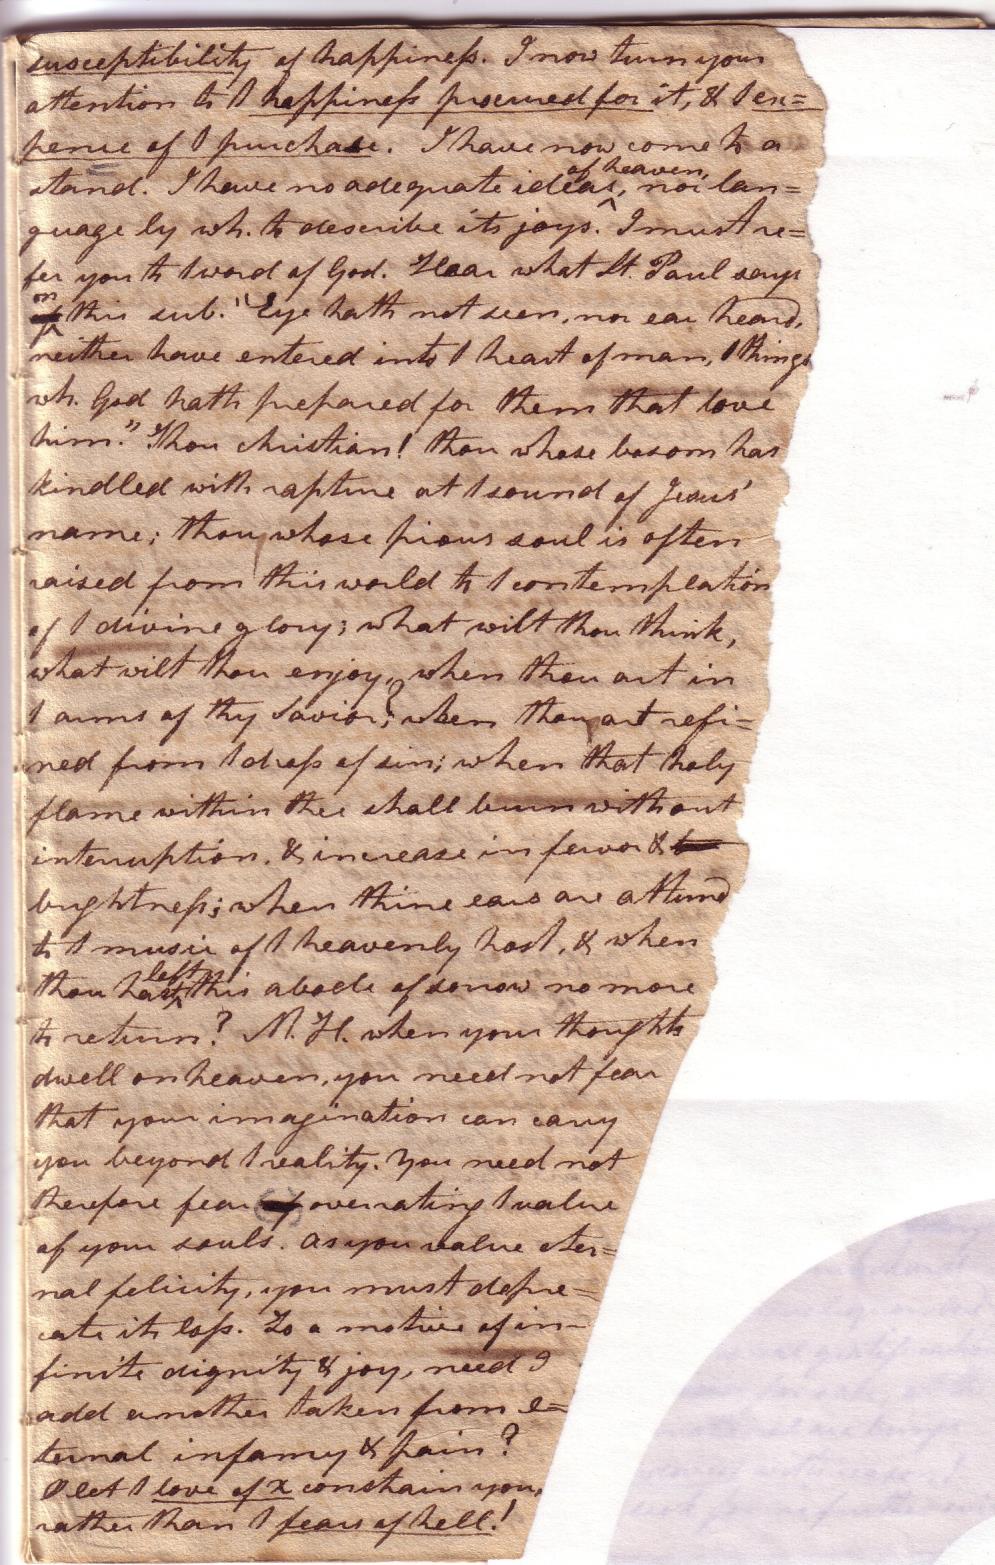 susceptibility of happiness. I now turn your
attention to 1 happiness procured for it, & 1 ex=
pence of 1 purchase. I have now come to a
stand. I have no adequate ideas, nor lan=
of heaven,
guage by wh. to describe its joys. I must re=
fer you to 1 word of God. Hear what St. Paul says
on
this sub. "Eye hath not seen, nor ear heard,
neither have entered into 1 heart of man, 1 things
wh. God hath prepared for them that love
him." Thou christian! thou whose bosom has
kindled with rapture at 1 sound of Jesus'
name; thou whose pious soul is often
raised from this world to 1 contemplation
of 1 divine glory; what wilt thou think,
what wilt thou enjoy, when thou art in
1 arms of thy Savior? ; when thou art refi=
ned from 1 dross of sin; when that holy
flame within thee shall burn without
interruption, & increase in fervor &
brightness; when thine ears are attund
to 1 music of 1 heavenly host, & when
thou hast left this abode of sorrow no more
to return? M. H. when your thoughts
dwell on heaven, you need not fear
that your imagination can carry
you beyond 1 reality. You need not
therefore fear overrating 1 value
of your souls. As you value eter=
nal felicity, you must depre=
cate its loss. To a motive of in=
finite dignity & joy, need I
add another taken from e=
ternal infamy & pain?
O let 1 love of X constrain you,
rather than 1 fears of hell!